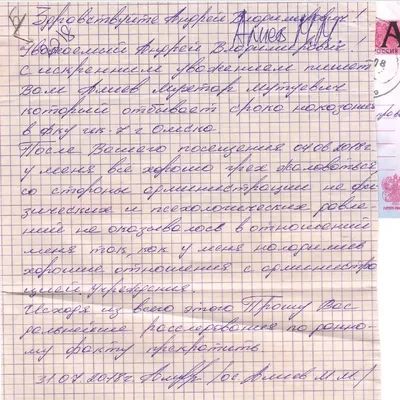 Здравствуйте Андрей Владимирович!
Алиев М.М
Уважаемый Андрей Владимирович!
с искренним уважением пишет
Вам Алиев Мухтар Мутуевич
который отбывает срока наказания
в фку ик-7 г Омска.
После Вашего посещения 04.06.2018г
у меня все хорошо грех жаловаться
со стороны администрации не фи-
зических и психологических давле-
ний не оказывалось в отношений
меня так, как у меня наладились
хорошие отношения с администра-
цией учреждения.
Исходя из всего этого Прошу Вас
дальнейшее расследование по данно-
му факту прекратить.
31.07.2018г. /ос Алиев М.М/
А
РОССИЯ